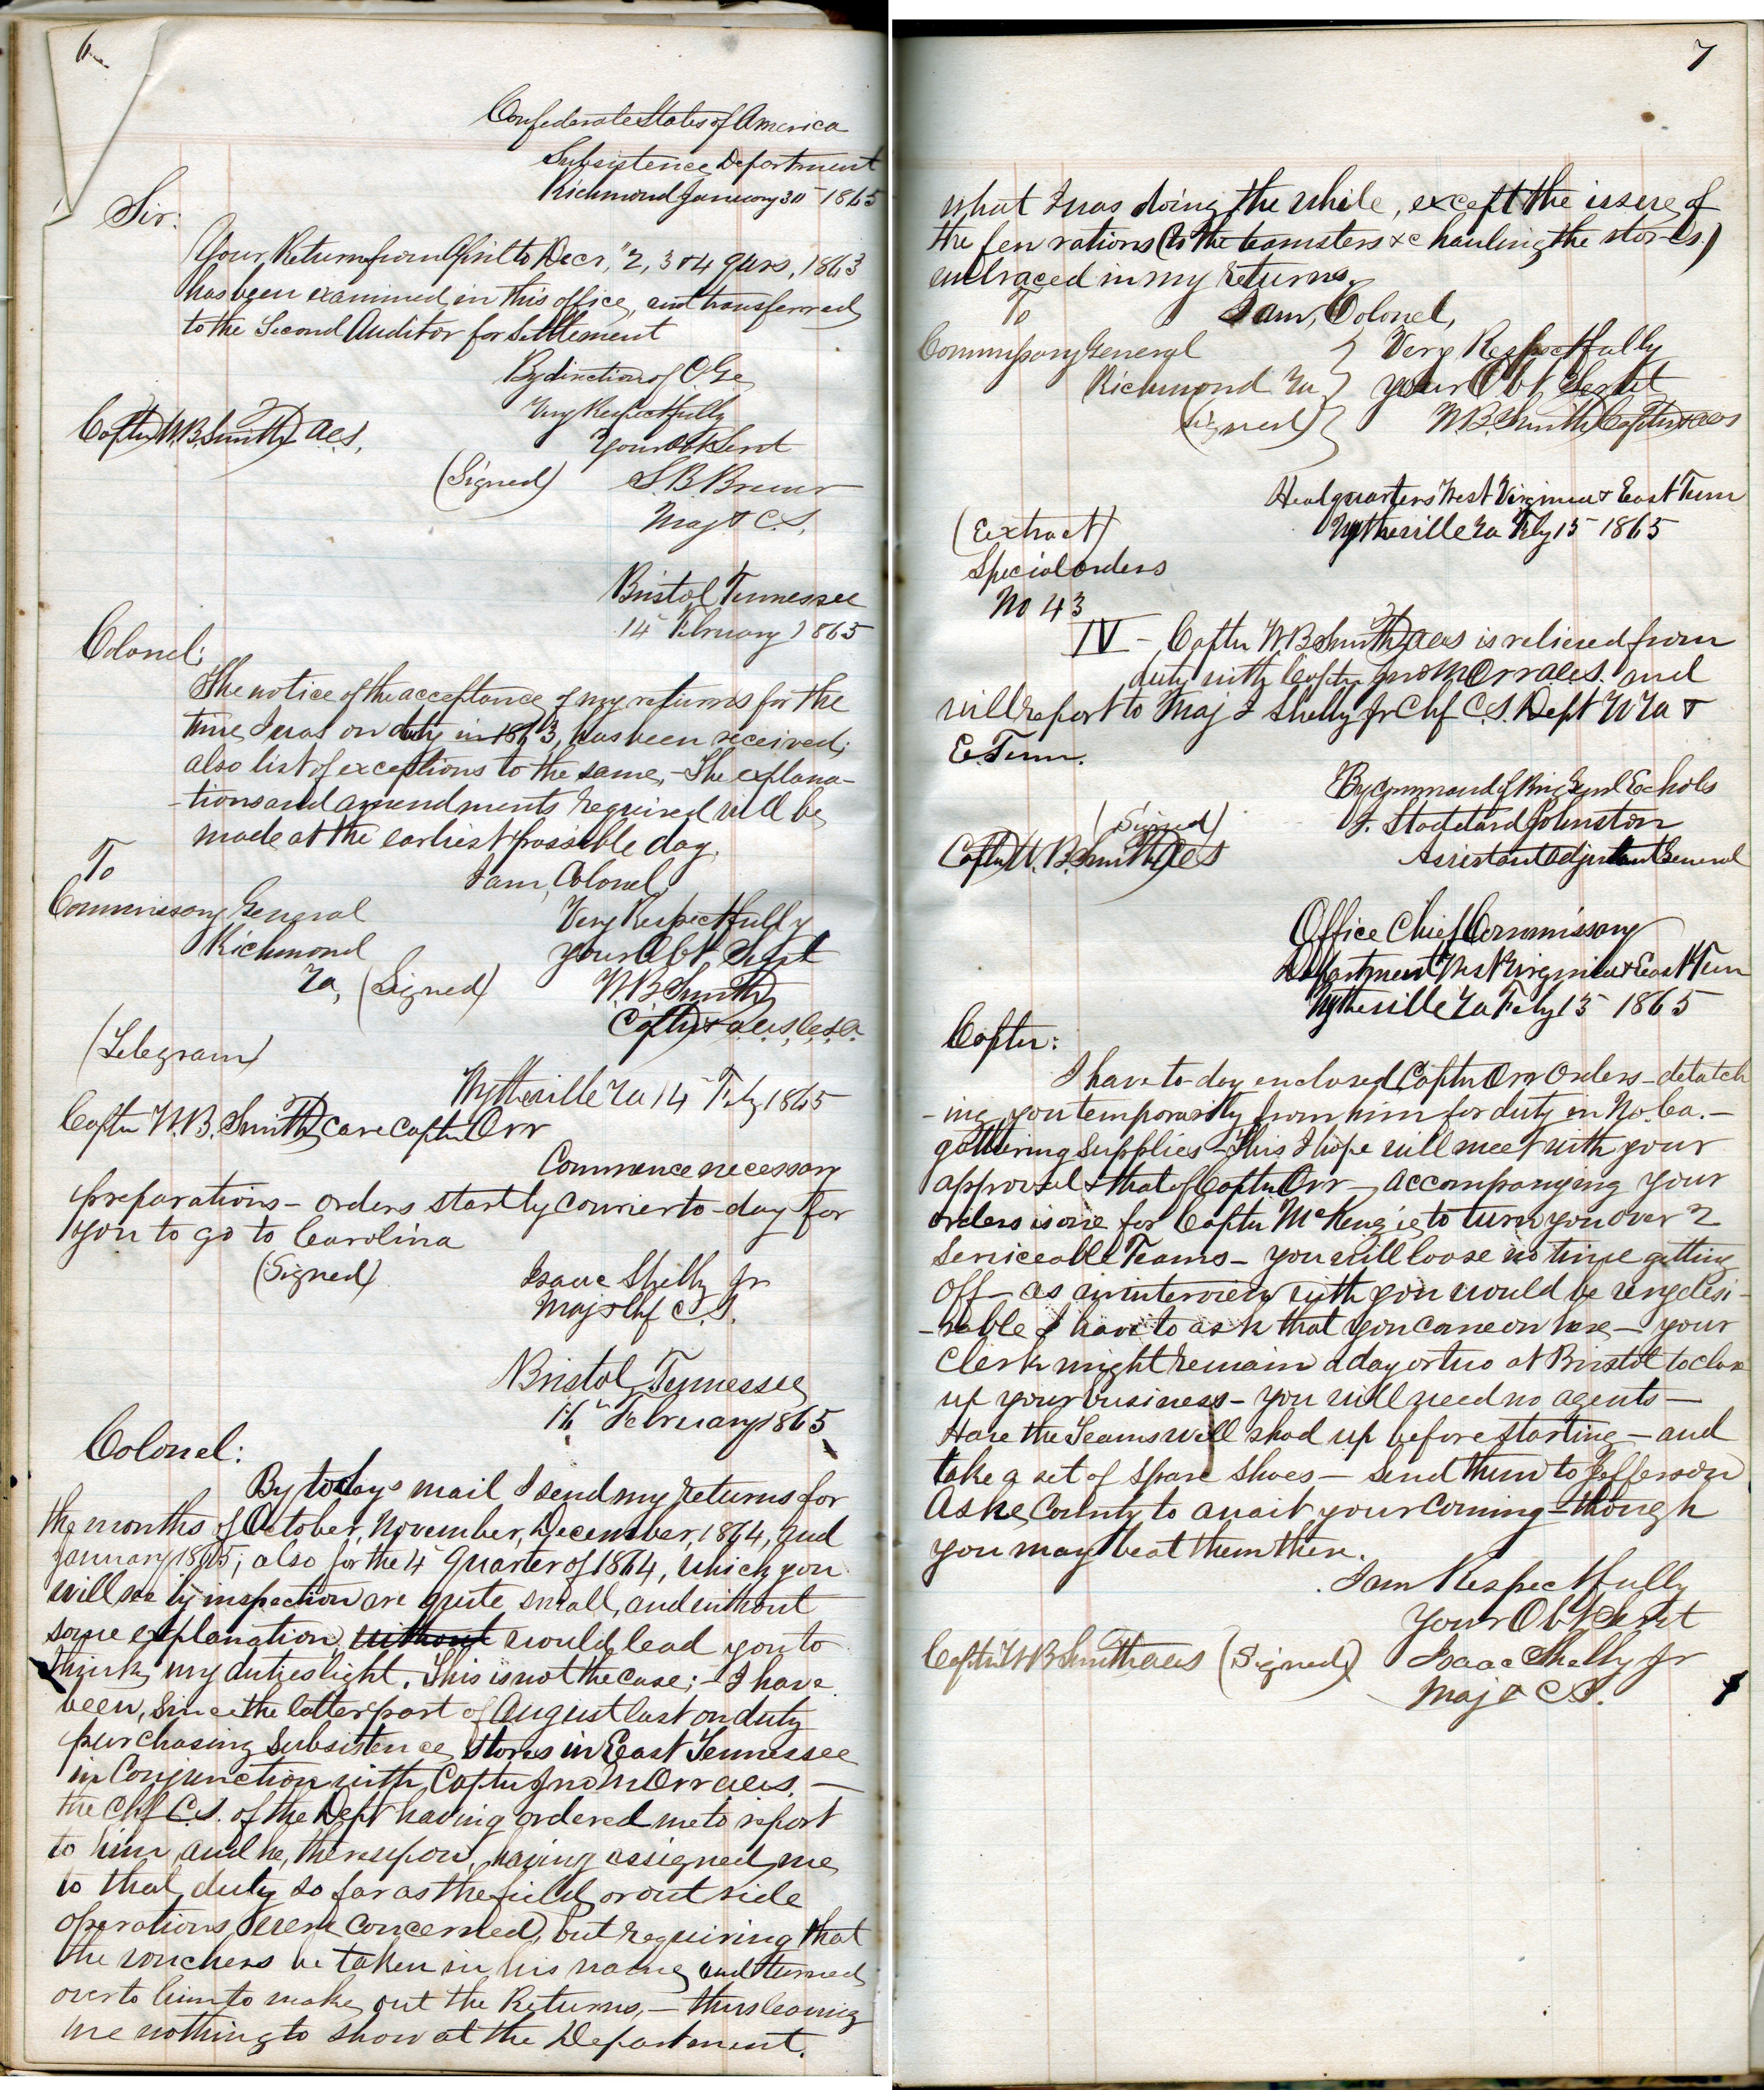 6
Confederate States of America
Subsistence Department
Richmond January 30 1865
Sir:
Your Return from April to Decr, "2, 3 & 4 qurs, 1863
has been examined in this office, and transferred
to the Second Auditor for settlement
By direction of
Very Respectfully
Your Obt Servt
Captn W.B. Smith acs,
(Signed) S. B. Brewer
Maj & C.S.
Bristol Tennessee
14" February 1865
Colonel;
The notice of the acceptance of my returns for the
time I was on duty in 1863, has been received;
also list of exceptions to the same, - The explana-
-tions and amendments required will be
made at the earliest possible day.
To
I am, Colonel,
Commissary General
Very Respectfully
Richmond
your Obt. Servt
Va, (Signed) W.B. Smith
Captn & a.c.s, C.S.A.
(Telegram)
Wytheville Va 14" Feby 1865
Captn W.B. Smith care Captn Orr
Commence necessary
preparations - orders start by courier to-day for
you to go to Carolina
(Signed) Isaac Shelby Jr
Maj & Chf C.S.
Bristol, Tennessee
16" February 1865
Colonel:
By todays mail I send my returns for
the months of October, November, December, 1864, and
January 1865; also for the 4" Quarter of 1864, which you
will see by inspection are quite small, and without
some explanation, without would lead you to
think my duties light. This is not the case; - I have
been, since the latter part of August last on duty
purchasing Subsistence stores in East Tennessee
in Conjunction with Captn Jno M Orr acs. -
the Chf C.S. of the Dept having ordered me to report
to him, and he, thereupon, having assigned me
to that duty so far as the field, or outside
operations, were concerned, but requiring that
the vouchers be taken in his name, and turned
over to him to make out the Returns, - thus leaving
me nothing to show at the Department.
7
what I was doing the while, except the issue of
the few rations (to the teamsters &c hauling the stores.)
embraced in my returns.
To
I am, Colonel,
Commissary General
Very Respectfully
Richmond Va
your Obt. Servt
(Signed) W.B. Smith Captn & acs
Headquarters West Virginia & East Tenn
Wytheville Va Feby 15 1865
(Extract)
Special orders
No 43
IV - Captn W B Smith acs is relieved from
duty with Captn Jno M Orr acs. and
will report to Maj I Shelby Jr Chf C.S. Dept W Va &
E. Tenn.
By command of Brig Genl Echols
(Signed) J. Stoddard Johnston
Captn W. B. Smith acs
Assistant Adjutant General
Office Chief Commissary
Department West Virginia & East Tenn
Wytheville Va Feby 15 1865
Captn:
I have to-day enclosed Captn Orr Orders - detatch
-ing you temporarily from him for duty in No. Ca. -
gathering supplies - This I hope will meet with your
approval & that of Captn Orr - accompanying your
orders is one for Captn McKenzie to turn you over 2
Serviceable Teams - you will loose no time getting
off - as an interview with you would be very desi-
-rable I have to ask that you come on here - your
Clerk might remain a day or two at Bristol to close
up your business - you will need no agents -
Have the Teams well shod up before starting - and
take a set of spare shoes - send them to Jefferson
Ashe County to await your coming - though
you may beat them there.
I am Respectfully
Your Obt Servt
Captn W B Smith acs (Signed) Isaac Shelby Jr
Maj & C.S.